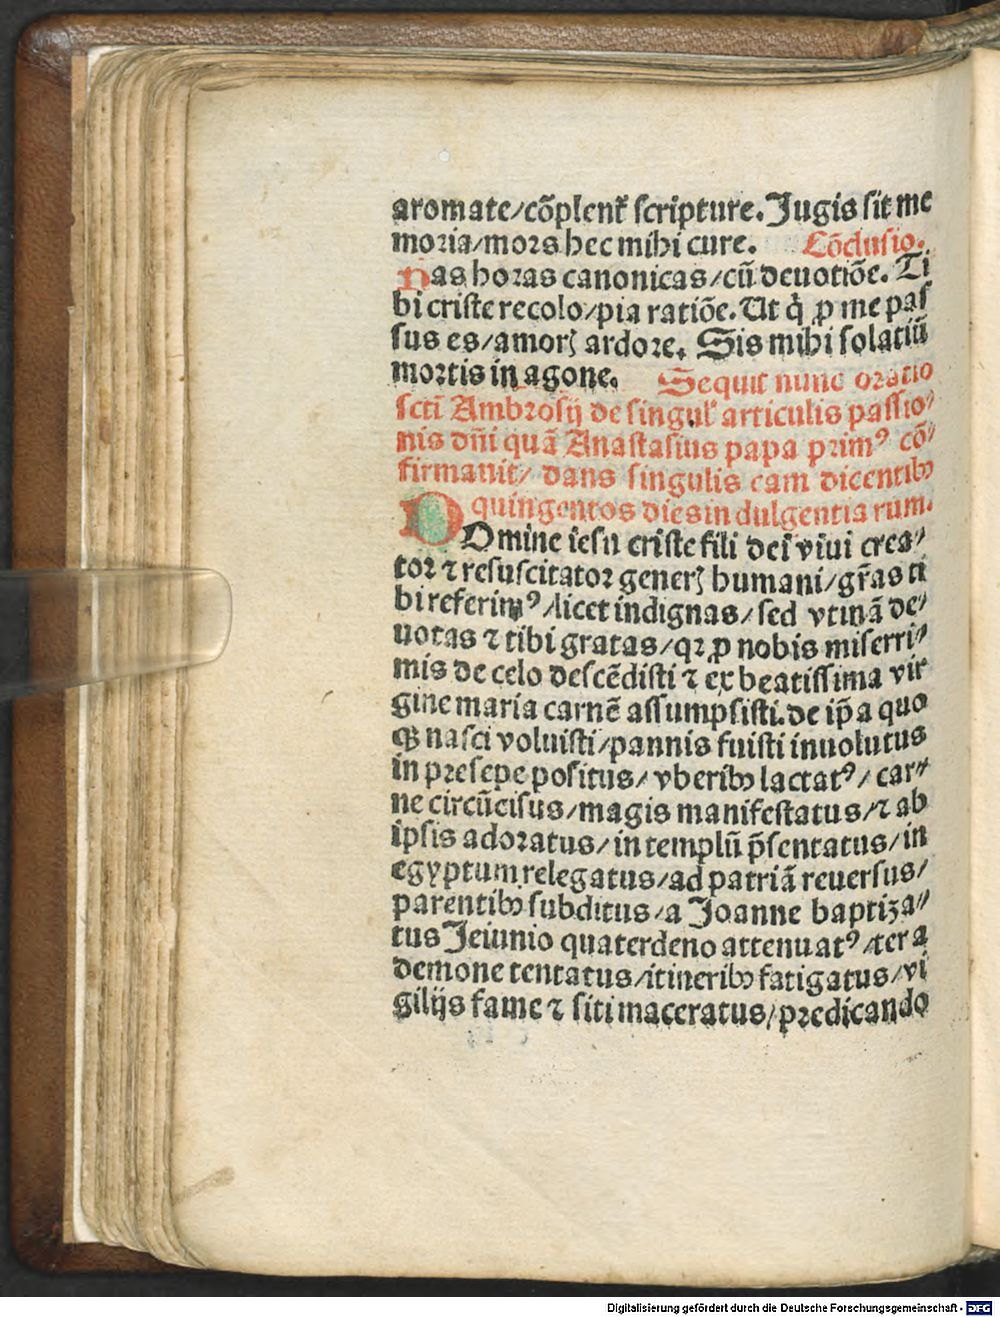 aromate/cōplent̃ scripture. Jugis sit me
moria/mors hec mihi cure. Cōclusio.
Has horas canonicas/cū deuotiōe. Ti
bi criste recolo/pia ratiōe. Ut q̇ ꝑ me pas
sus es/amorꝫ ardore. Sis mihi solatiū
mortis in agone. Sequit̃ nunc oratio
scti Ambrosij de singul' articulis passio⸗
nis dñi quā Anastasius papa primꝰ cō⸗
firmauit/ dans singulis eam dicentibꝰ
quingentos dies in dulgentiarum.
DOmine iesu criste fili dei viui crea⸗
tor ⁊ resuscitator generꝫ humani/gr̃as ti
bi referimꝰ/licet indignas/sed vtinā de⸗
uotas ⁊ tibi gratas/qꝛ ꝓ nobis miserri⸗
mis de celo descēdisti ⁊ ex beatissima vir
gine maria carnē assumpsisti. de ip̄a quo
qꝫ nasci voluisti/pannis fuisti inuolutus
in presepe positus/ vberibꝰ lactatꝰ/ car⸗
ne circūcisus/magis manifestatus/⁊ ab
ipsis adoratus/in templū p̄sentatus/in
egyptum relegatus/ad patriā reuersus/
parentibꝰ subditus/a Joanne baptiza⸗
tus Jeiunio quaterdeno attenuatꝰ/ter a
demone tentatus/itineribꝰ fatigatus/vi
gilijs fame ⁊ siti maceratus/predicando
Digitalisierung gefördert durch die Deutsche Forschungsgemeinschaft - DFG